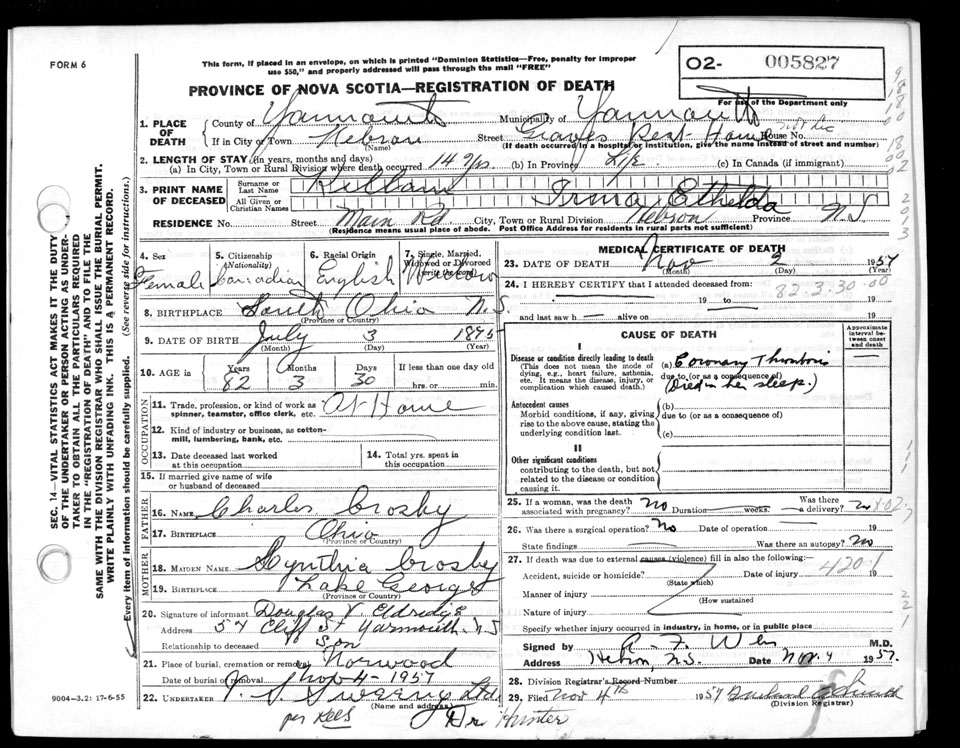 FORM 6
This form, if placed in an envelope, on which is printed "Dominion Statistics—Free, penalty for improper
use $50," and properly addressed will pass through the mail "FREE"
O2- 005827
For use of the Department only
PROVINCE OF NOVA SCOTIA—REGISTRATION OF DEATH
1. PLACE OF DEATH
County of Yarmouth Municipality of Yarmouth
If in City or Town Hebron Street Graves Rest Home House No.
(Name) (If death occurred in a hospital or institution, give the name instead of street and number)
2. LENGTH OF STAY (in years, months and days)
(a) In City, Town or Rural Division where death occurred 14 yrs (b) In Province Life (c) In Canada (if immigrant)
3. PRINT NAME OF DECEASED
Surname or Last Name Killam
All Given or Christian Names Irma Ethelda
RESIDENCE No. Street Main Rd. City, Town or Rural Division Hebron Province N.S.
(Residence means usual place of abode. Post Office Address for residents in rural parts not sufficient)
4. Sex Female
5. Citizenship (Nationality) Canadian
6. Racial Origin English
7. Single, Married, Widowed or Divorced (write the word) Widow
8. BIRTHPLACE South Ohio N.S.
(Province or Country)
9. DATE OF BIRTH July 3 1875
(Month) (Day) (Year)
10. AGE in Years Months Days If less than one day old
82 3 30 hrs. or min.
OCCUPATION
11. Trade, profession, or kind of work as
spinner, teamster, office clerk, etc. At Home
12. Kind of industry or business, as cotton-
mill, lumbering, bank, etc.
13. Date deceased last worked
at this occupation
14. Total yrs. spent in
this occupation
15. If married give name of wife
or husband of deceased
FATHER
16. NAME Charles Crosby
17. BIRTHPLACE Ohio
(Province or Country)
MOTHER
18. MAIDEN NAME Cynthia Crosby
19. BIRTHPLACE Lake George
(Province or Country)
20. Signature of informant Douglas V. Eldridge
Address 57 Cliff St Yarmouth, N.S
Relationship to deceased Son
21. Place of burial, cremation or removal Norwood
Date of burial or removal Nov 4 - 1957
22. UNDERTAKER Sweeny Ltd.
(Name and address)
per
Dr. Hunter
MEDICAL CERTIFICATE OF DEATH
23. DATE OF DEATH Nov 2 1957
(Month) (Day) (Year)
24. I HEREBY CERTIFY that I attended deceased from:
82.3.30.00
19 to 19
and last saw h alive on 19
CAUSE OF DEATH
Approximate interval between onset and death
I
Disease or condition directly leading to death
(This does not mean the mode of
dying, e.g., heart failure, asthenia,
etc. It means the disease, injury, or
complication which caused death).
(a) Coronary Thrombosis
due to (or as a consequence of)
(Died in her sleep.)
Antecedent causes
Morbid conditions, if any, giving
rise to the above cause, stating the
underlying condition last.
(b)
due to (or as a consequence of)
(c)
II
Other significant conditions
contributing to the death, but not
related to the disease or condition
causing it.
25. If a woman, was the death
associated with pregnancy? No Duration weeks. Was there a delivery? no
26. Was there a surgical operation? No Date of operation 19
State findings Was there an autopsy? No
27. If death was due to external causes (violence) fill in also the following:
420.1
Accident, suicide or homicide? Date of injury 19
(State which)
Manner of injury
(How sustained
Nature of injury
Specify whether injury occurred in industry, in home, or in public place
Signed by M.D.
Address Hebron, N.S. Date Nov. 4 1957.
28. Division Registrar's Record Number
29. Filed Nov 4th 1957
(Division Registrar)
SEC. 14—VITAL STATISTICS ACT MAKES IT THE DUTY
OF THE UNDERTAKER OR PERSON ACTING AS UNDER-
TAKER TO OBTAIN ALL THE PARTICULARS REQUIRED
IN THE "REGISTRATION OF DEATH" AND TO FILE THE
SAME WITH THE DIVISION REGISTRAR WHO SHALL ISSUE THE BURIAL PERMIT.
WRITE PLAINLY WITH UNFADING INK. THIS IS A PERMANENT RECORD.
Every item of information should be carefully supplied. (See reverse side for instructions.)
9004—3.2: 17-6-55